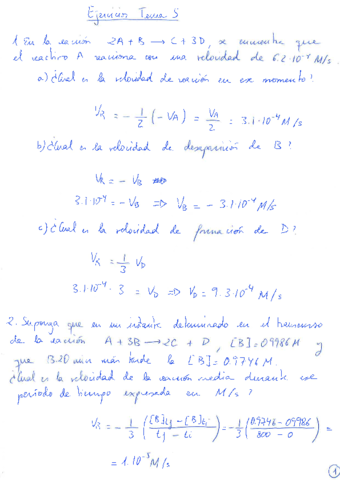 Ejercicios Tema 5
1. En la reacción 2A + B → C + 3D, se encuentra que
el reactivo A reacciona con una velocidad de 6.2·10⁻⁴ M/s.
a) ¿Cual es la velocidad de reacción en ese momento?
VR = - 1/2 (-VA) = VA/2 = 3.1·10⁻⁴ M/s
b) ¿Cual es la velocidad de desaparición de B?
VR = - VB
3.1·10⁻⁴ = -VB => VB = - 3.1·10⁻⁴ M/s
c) ¿Cual es la velocidad de formación de D?
VR = 1/3 VD
3.1·10⁻⁴ · 3 = VD => VD = 9.3·10⁻⁴ M/s
2. Suponga que en un instante determinado en el transcurso
de la reacción A + 3B → 2C + D, [B] = 0.9986 M y
que 13.20 min más tarde la [B] = 0.9746 M.
¿Cual es la velocidad de la reacción media durante ese
periodo de tiempo expresada en M/s?
VR = - 1/3 ([B]f - [B]i / tf - ti) = - 1/3 (0.9746 - 0.9986 / 800 - 0) =
= 1·10⁻⁵ M/s
1